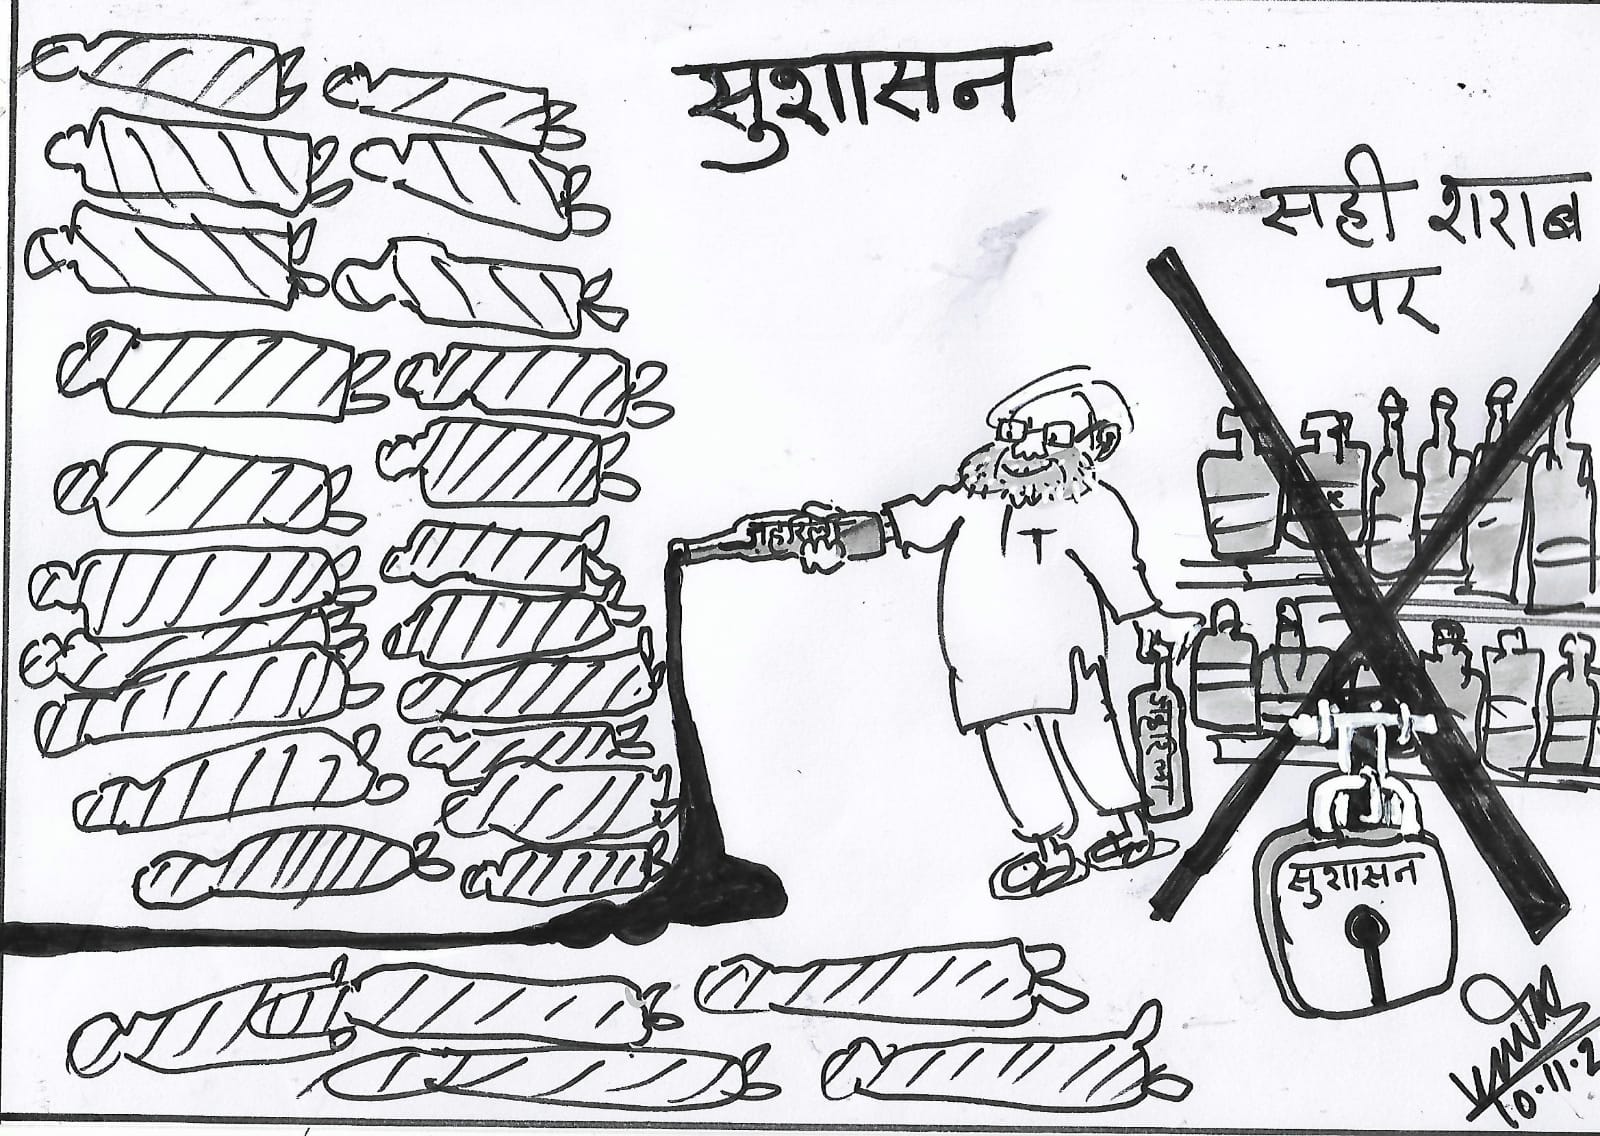 सुशासन
सही शराब
पर
जहरिला
जहरिला
सुशासन
10.11.2